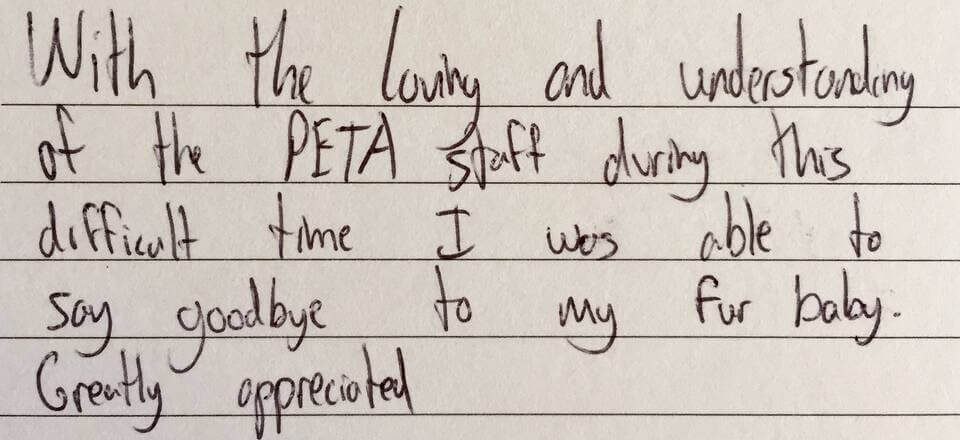 With the loving and understanding
of the PETA staff during this
difficult time I was able to
say goodbye to my fur baby.
Greatly appreciated